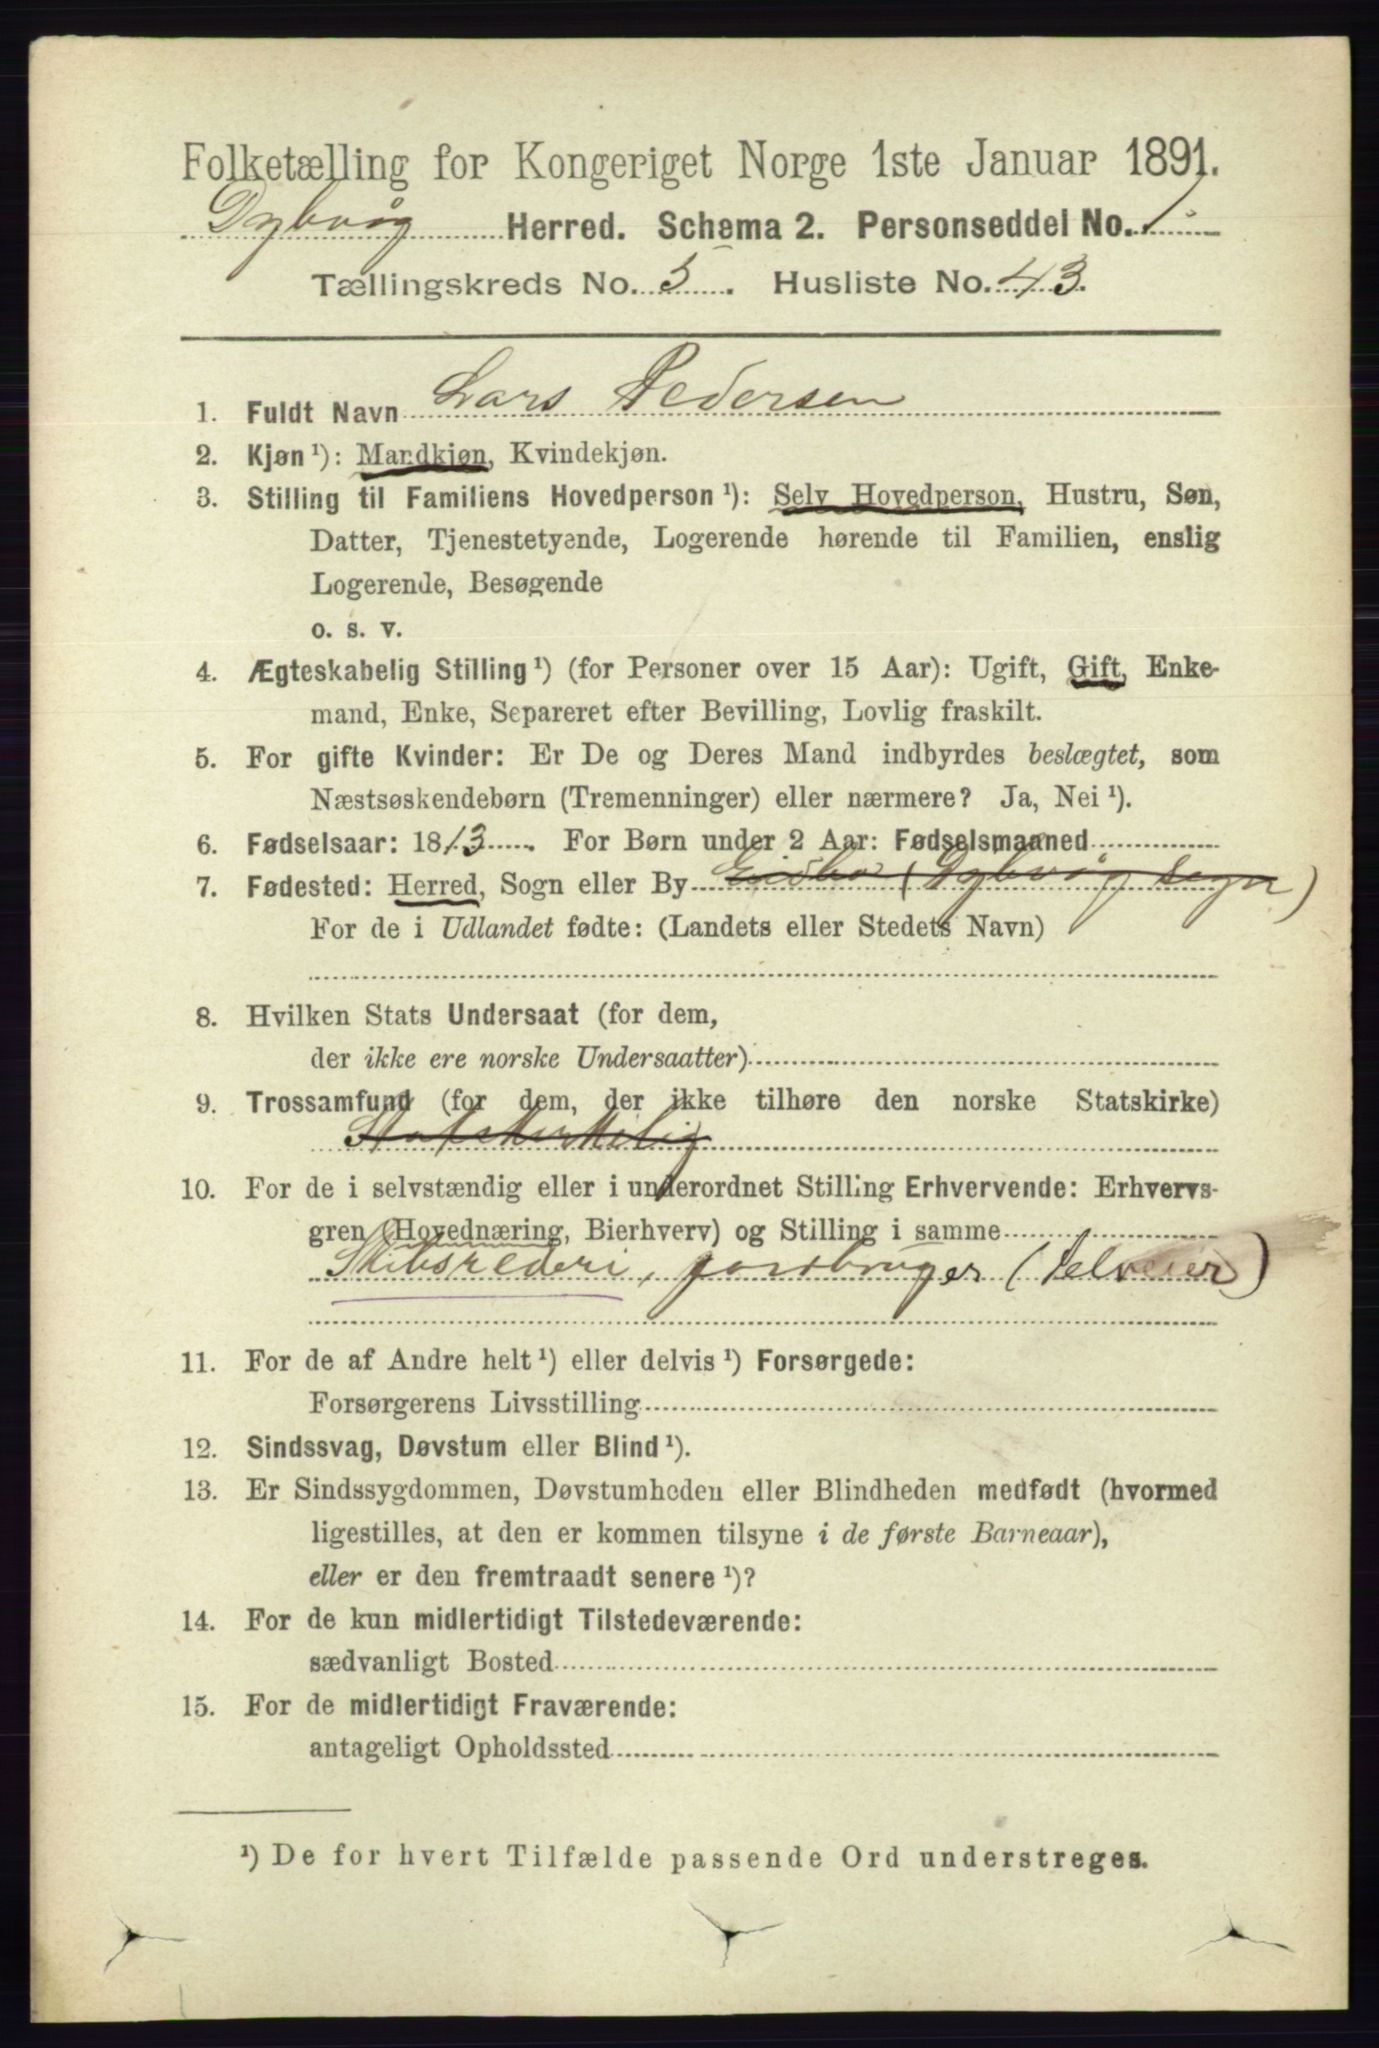 Folketælling for Kongeriget Norge 1ste Januar 1891.
Dybvåg Herred. Schema 2. Personseddel No. 1
Tællingskreds No. 5. Husliste No. 43.
1. Fuldt Navn Lars Pedersen
2. Kjøn ¹): Mandkjøn, Kvindekjøn.
3. Stilling til Familiens Hovedperson ¹): Selv Hovedperson, Hustru, Søn,
Datter, Tjenestetyende, Logerende hørende til Familien, enslig
Logerende, Besøgende
o. s. v.
4. Ægteskabelig Stilling ¹) (for Personer over 15 Aar): Ugift, Gift, Enke-
mand, Enke, Separeret efter Bevilling, Lovlig fraskilt.
5. For gifte Kvinder: Er De og Deres Mand indbyrdes beslægtet, som
Næstsøskendebørn (Tremenninger) eller nærmere? Ja, Nei ¹).
6. Fødselsaar: 1813. For Børn under 2 Aar: Fødselsmaaned
7. Fødested: Herred, Sogn eller By (Dybvåg Sogn)
For de i Udlandet fødte: (Landets eller Stedets Navn)
8. Hvilken Stats Undersaat (for dem,
der ikke ere norske Undersaatter)
9. Trossamfund (for dem, der ikke tilhøre den norske Statskirke)
Statskirkelig
10. For de i selvstændig eller i underordnet Stilling Erhvervende: Erhvervs-
gren (Hovednæring, Bierhverv) og Stilling i samme
Skibsrederi, jordbruger (selveier)
11. For de af Andre helt ¹) eller delvis ¹) Forsørgede:
Forsørgerens Livsstilling
12. Sindssvag, Døvstum eller Blind ¹).
13. Er Sindssygdommen, Døvstumheden eller Blindheden medfødt (hvormed
ligestilles, at den er kommen tilsyne i de første Barneaar),
eller er den fremtraadt senere ¹)?
14. For de kun midlertidigt Tilstedeværende:
sædvanligt Bosted
15. For de midlertidigt Fraværende:
antageligt Opholdssted
¹) De for hvert Tilfælde passende Ord understreges.